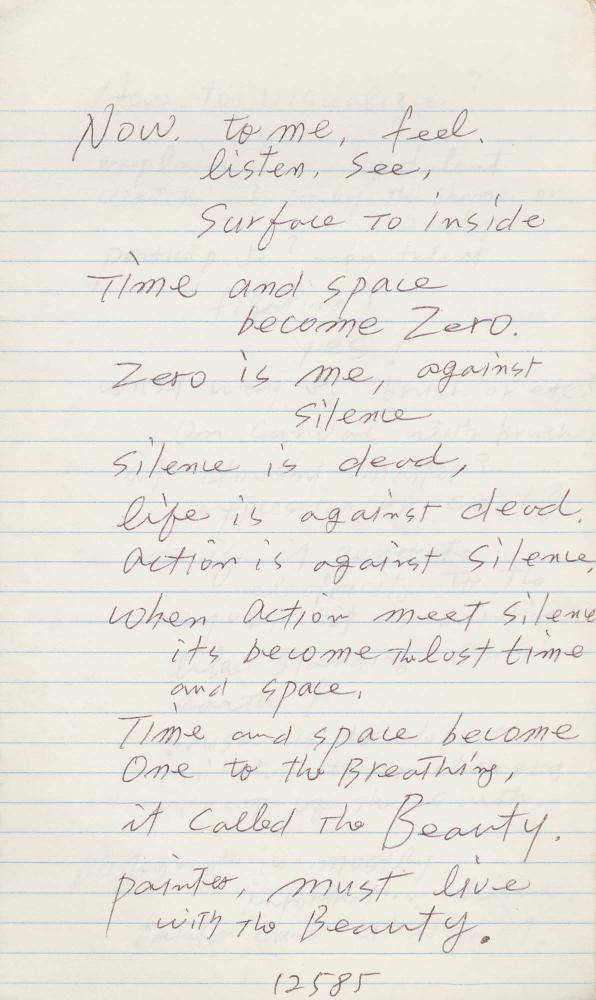 Now. to me, feel.
listen, see,
Surface To inside
Time and space
become Zero.
Zero is me, against
silence
silence is dead,
life is against dead.
action is against silence,
when action meet silence
its become The lost time
and space.
Time and space become
One to the Breathing,
it called The Beauty.
painter, must live
with The Beauty.
12585